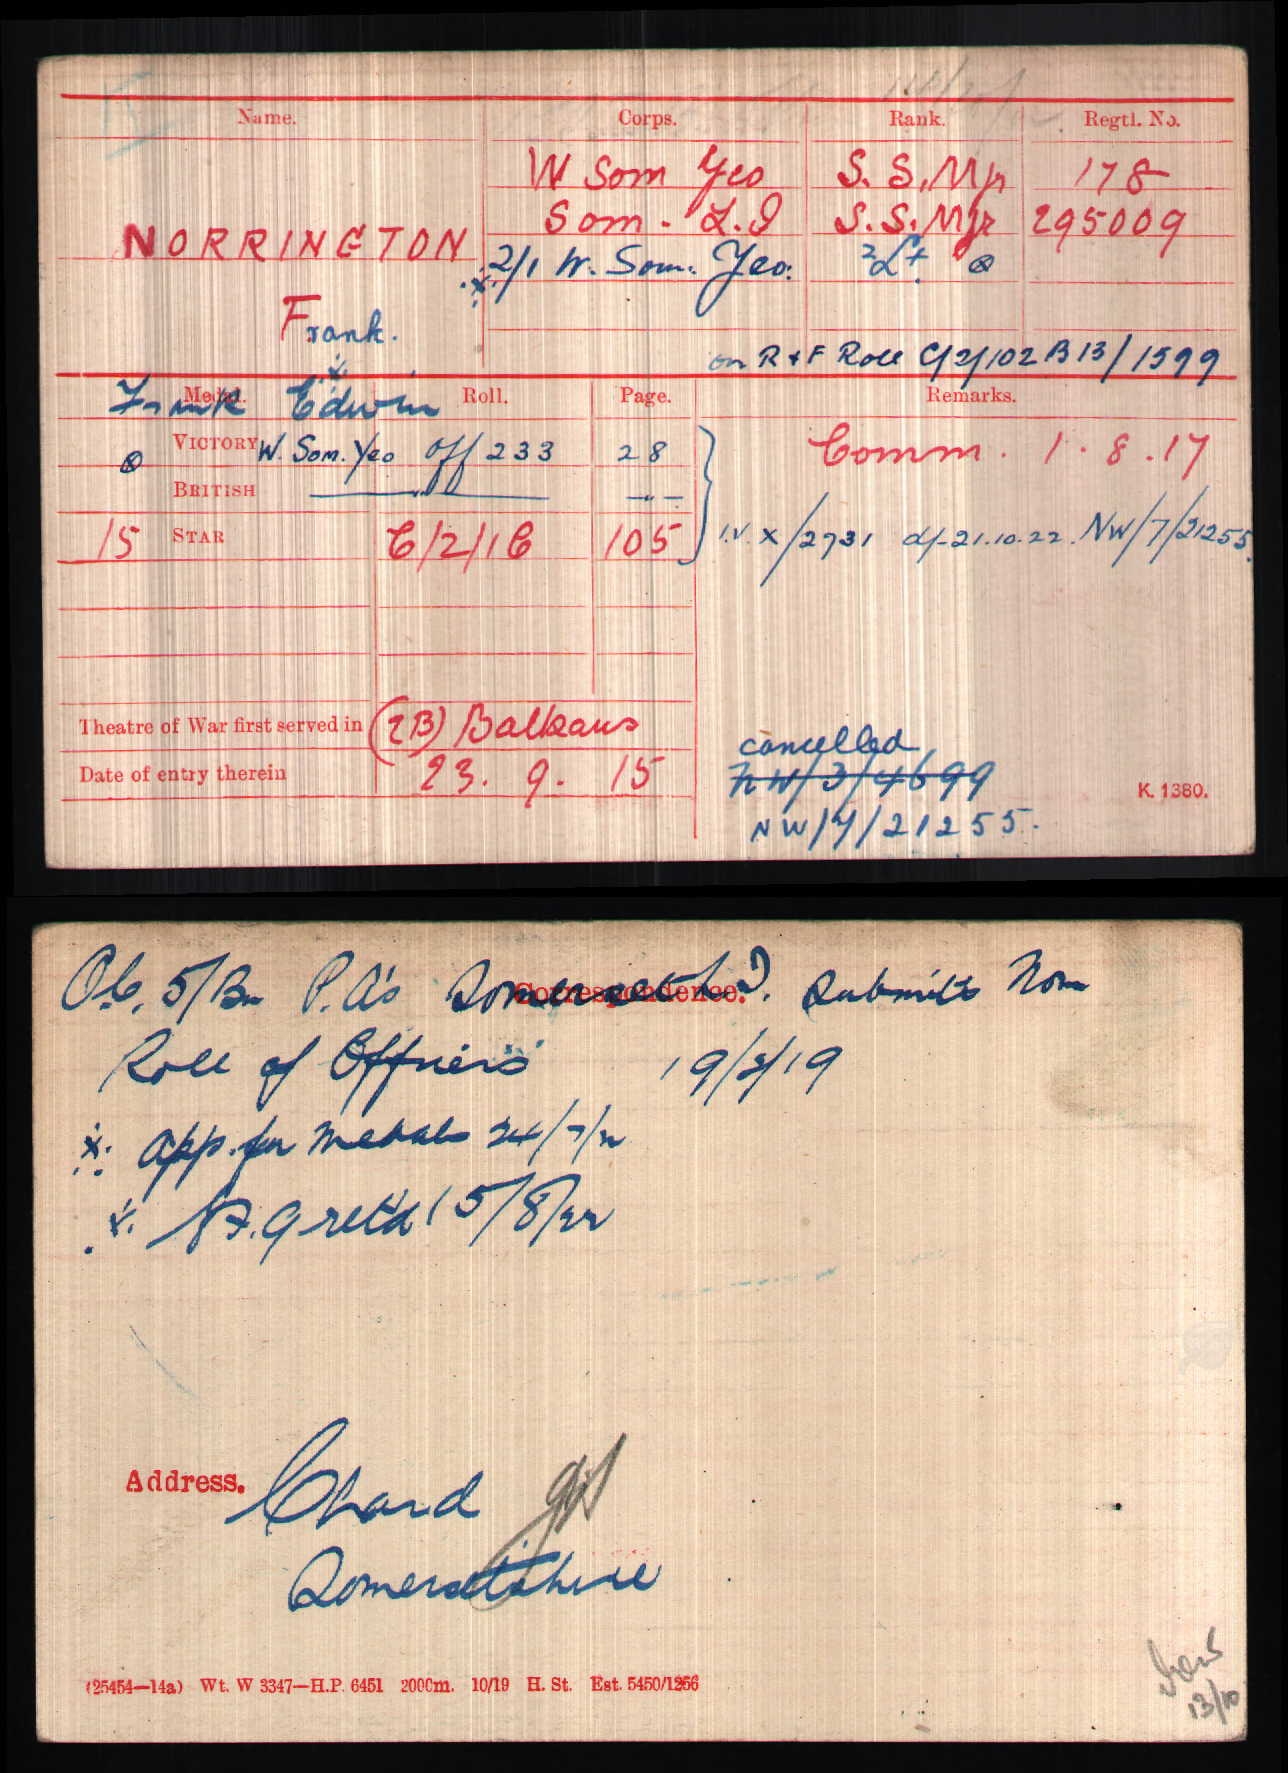 Name. Corps. Rank. Regtl. No.
W Som Yeo S. S. Mjr 178
NORRINGTON Som. L.I S.S. Mjr 295009
2/1 W. Som. Yeo. 2/Lt. ⊗
Frank.
on R & F Roll C/2/102 B13/1599
Medal. Roll. Page. Remarks.
Frank Edwin
⊗ VICTORY W. Som. Yeo Off 233 28 Comm. 1. 8. 17
BRITISH —"— —"—
15 STAR C/2/1C 105 I.V. X/2731 d/-21.10.22. NW/7/21255
Theatre of War first served in (2B) Balkans
Date of entry therein 23. 9. 15
cancelled
NW/3/4699
NW/7/21255.
K. 1380.
Correspondence.
O.C. 5/Bn P.A's Somerset L.I. Submits Nom
Roll of Officers 19/3/19
App. for Medals 24/7/22
retd 15/8/22
Address. Chard
Somersetshire
(25454—14a) Wt. W 3347—H.P. 6451 2000m. 10/19 H. St. Est. 5450/1256
13/10